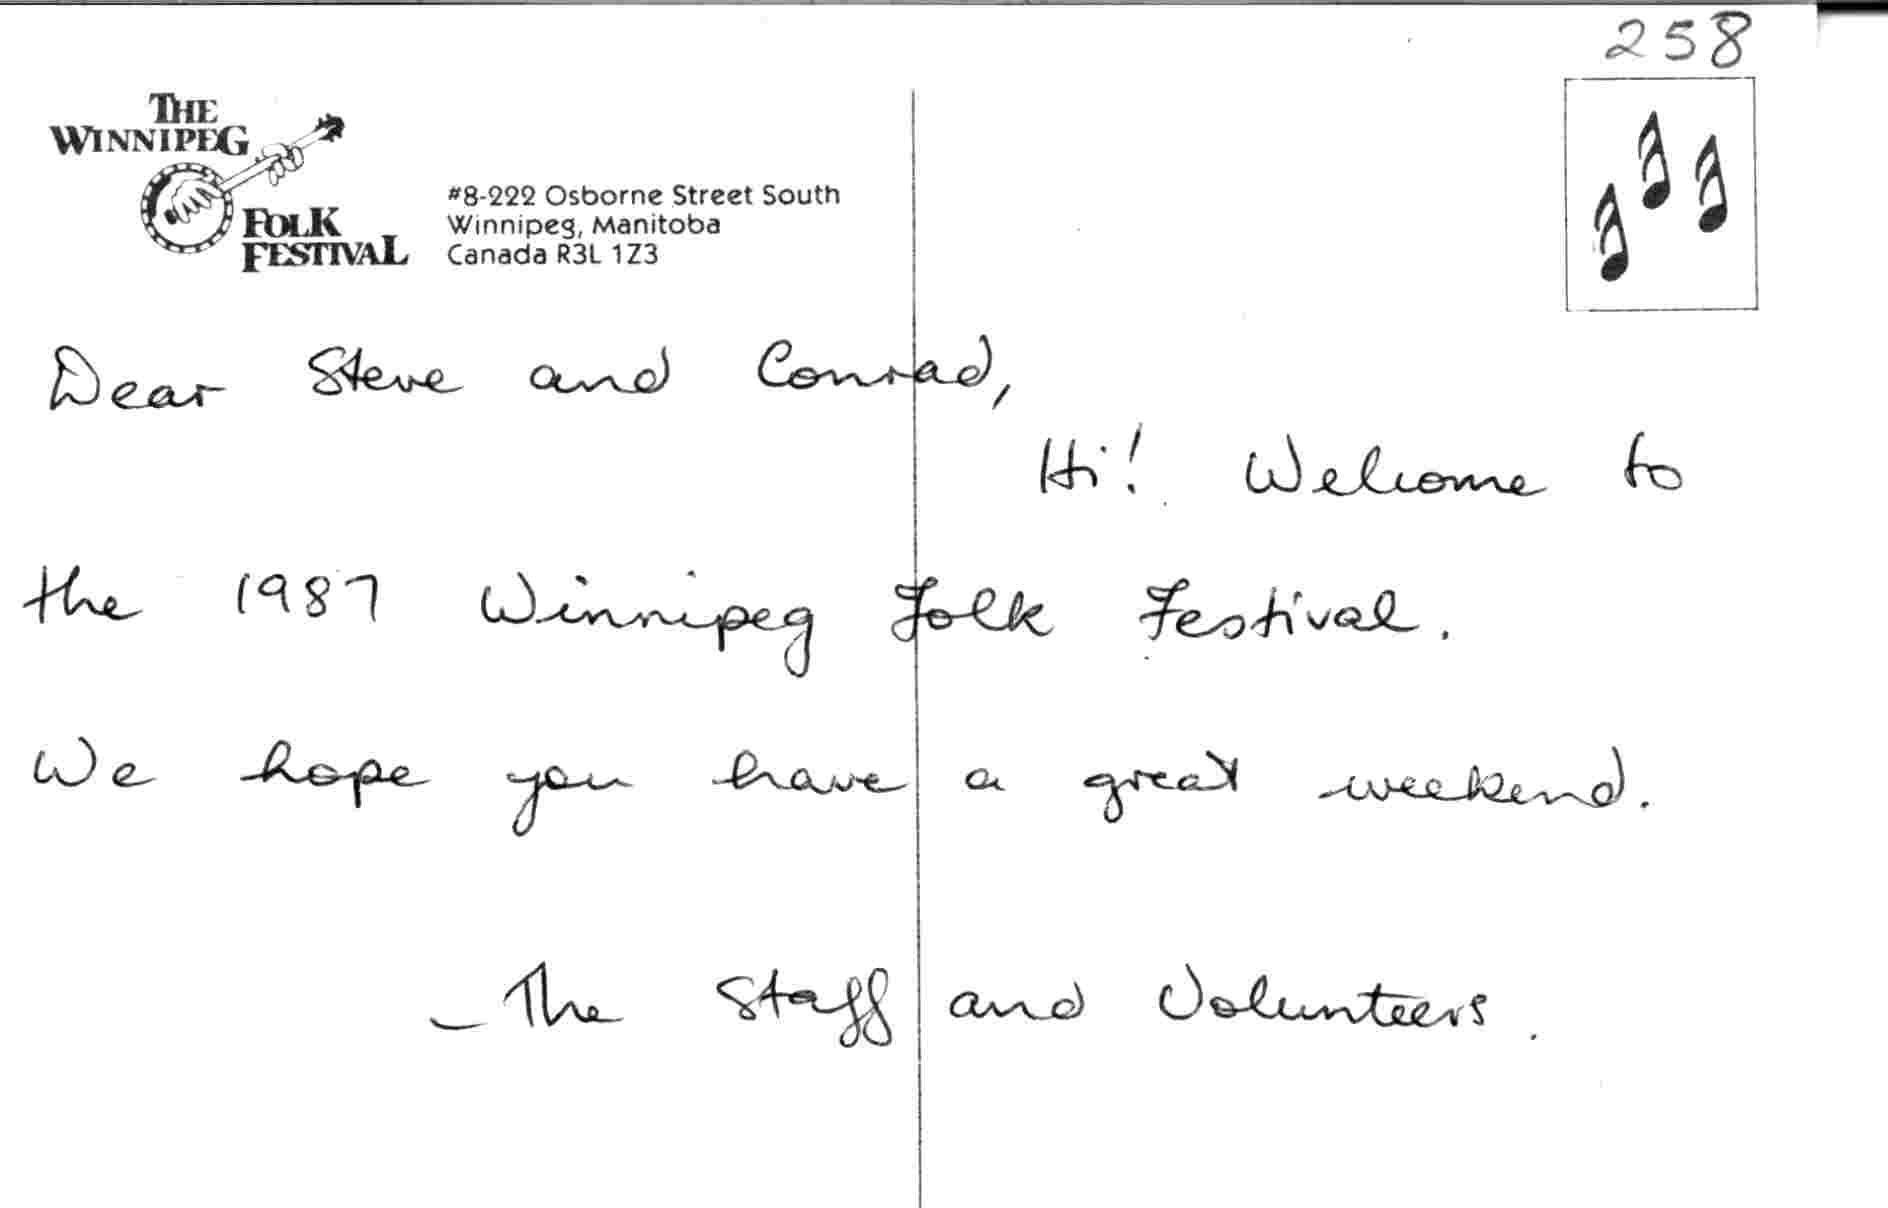 258
THE
WINNIPEG
FOLK
FESTIVAL
#8-222 Osborne Street South
Winnipeg, Manitoba
Canada R3L 1Z3
Dear Steve and Conrad,
Hi! Welcome to
the 1987 Winnipeg Folk Festival.
We hope you have a great weekend.
- The Staff and Volunteers.